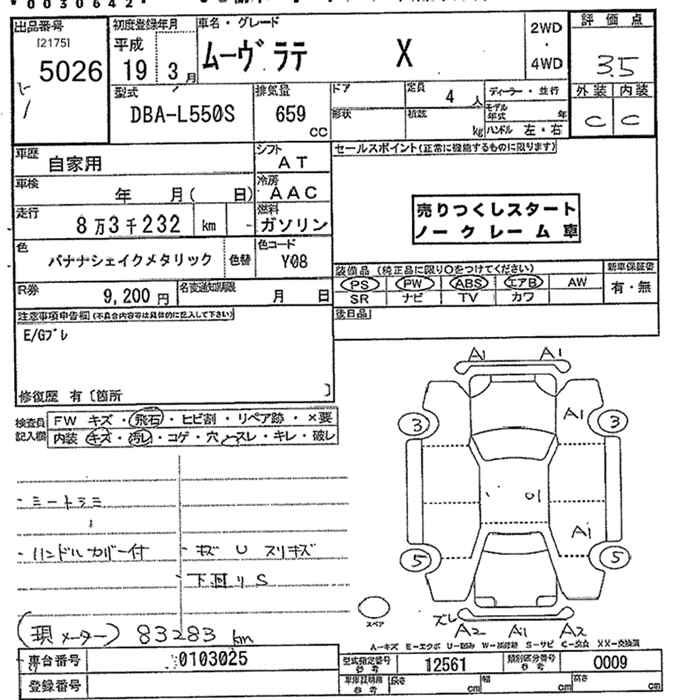 出品番号
[2175]
5026
初度登録年月
平成
19年 3月
車名・グレード
ムーヴ ラテ X
2WD
・
4WD
評価点
3.5
外装 内装
C C
型式
DBA-L550S
排気量
659
CC
ドア
形状
定員
4 人
積載
kg
ディーラー・並行
モデル年式 年
ハンドル 左・右
車歴
自家用
シフト
AT
車検
年 月( 日)
冷房
AAC
走行
8万3千232 km
燃料
ガソリン
色
バナナシェイクメタリック
色替
色コード
Y08
R券
9,200円
名変通知期限
月 日
セールスポイント(正常に機能するものに限ります)
売りつくしスタート
ノークレーム車
装備品(純正品に限り○をつけてください)
PS PW ABS エアB AW
SR ナビ TV カワ
新車保証書
有・無
後日品
注意事項申告欄(不具合内容等は具体的に記入して下さい)
E/Gブレ
修復歴 有〔箇所 〕
検査員
記入欄
FW キズ・飛石・ヒビ割・リペア跡・×要
内装 キズ・汚レ・コゲ・穴・スレ・キレ・破レ
ハンドルカバー付
キズ U スリキズ
下廻りS
(現メーター) 83283 km
A1 A1
A1
3 3
U1
A1
5 5
ズレ
A2 A1 A2
スペア
A-キズ E-エクボ U-凹み W-補修跡 S-サビ C-腐食 XX-交換済
車台番号
0103025
登録番号
型式指定番号
参考
12561
類別区分番号
参考
0009
車庫証明用
参考
長さ cm
幅 cm
高さ cm